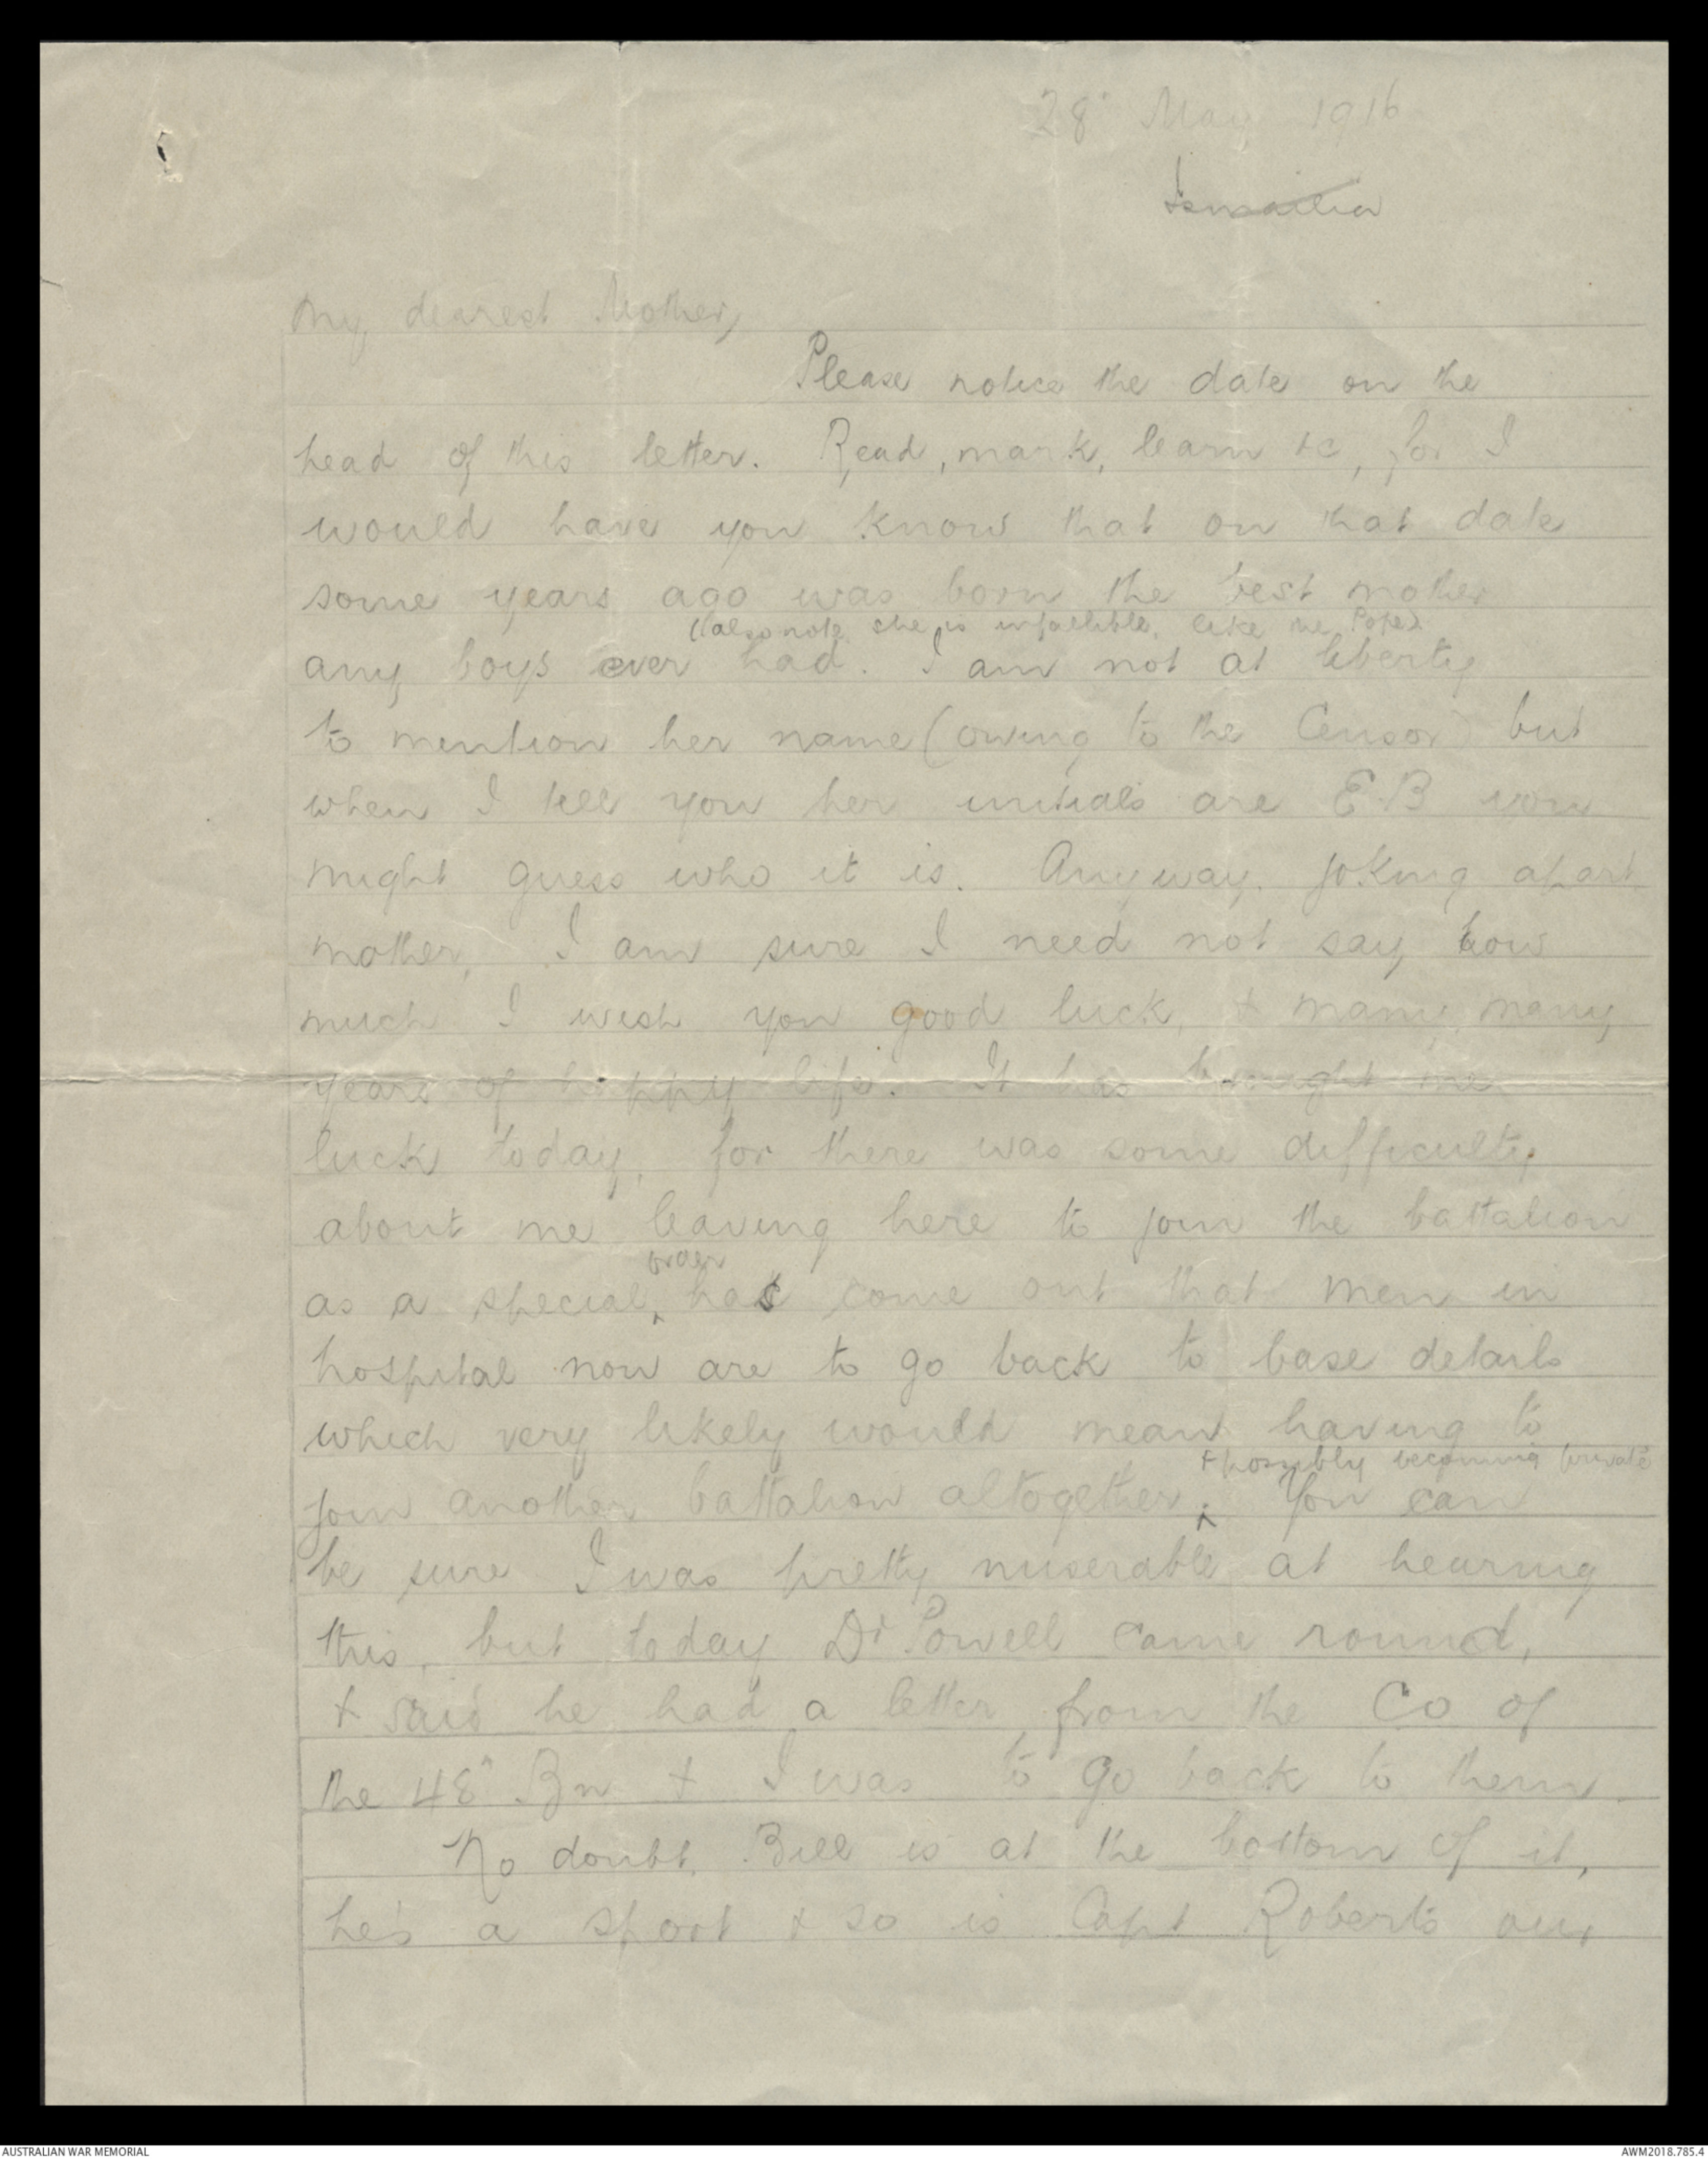 28" May 1916
Ismailia
My dearest Mother,
Please notice the date on the
head of this letter. Read, mark, learn &c, for I
would have you know that on that date
some years ago was born the best mother
(also note, she is infallible, like the Pope)
any boys ever had. I am not at liberty
to mention her name (owing to the Censor) but
when I tell you her initials are E.B you
might guess who it is. Anyway, joking apart
mother, I am sure I need not say how
much I wish you good luck, & many, many
years of happy life. It has brought me
luck today, for there was some difficulty
about me leaving here to join the battalion
order
as a special has come out that men in
hospital now are to go back to base details
which very likely would mean having to
& possibly becoming private
join another battalion altogether. You can
be sure I was pretty miserable at hearing
this, but today Dr Powell came round,
& said he had a letter from the CO of
the 48" Bn & I was to go back to them.
No doubt, Bill is at the bottom of it,
he's a sport & so is Capt Roberts our
AUSTRALIAN WAR MEMORIAL
AWM2018.785.4